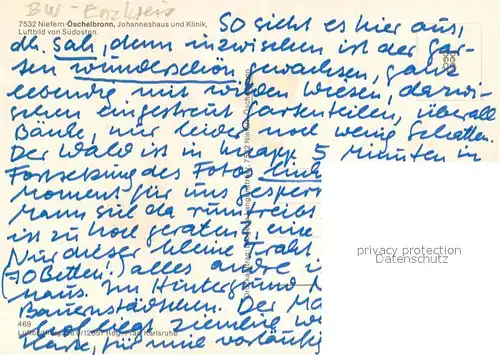 BW - Enzkreis
7532 Niefern-Öschelbronn, Johanneshaus und Klinik,
Luftbild von Südosten.
So sieht es hier aus,
dh. sah, denn inzwischen ist der Gar-
ten wunderschön gewachsen, ganz
lebendig mit wilden Wiesen, dazwi-
schen eingestreut Gartenteilen, überall
Bänke, nur leider noch wenig Schatten.
Der Wald ist in knapp 5 Minuten in
Fortsetzung des Fotos
Moment für uns gesperrt
Mann sich da rumtreibt
ist zu hoch geraten, eine
Nur dieser kleine Trakt
(70 Betten!) alles andre
haus. Im Hintergrund
Bauernstädtchen. Der
liegt ziemlich
für mich vorläufig
privacy protection
Datenschutz
469
Karlsruhe